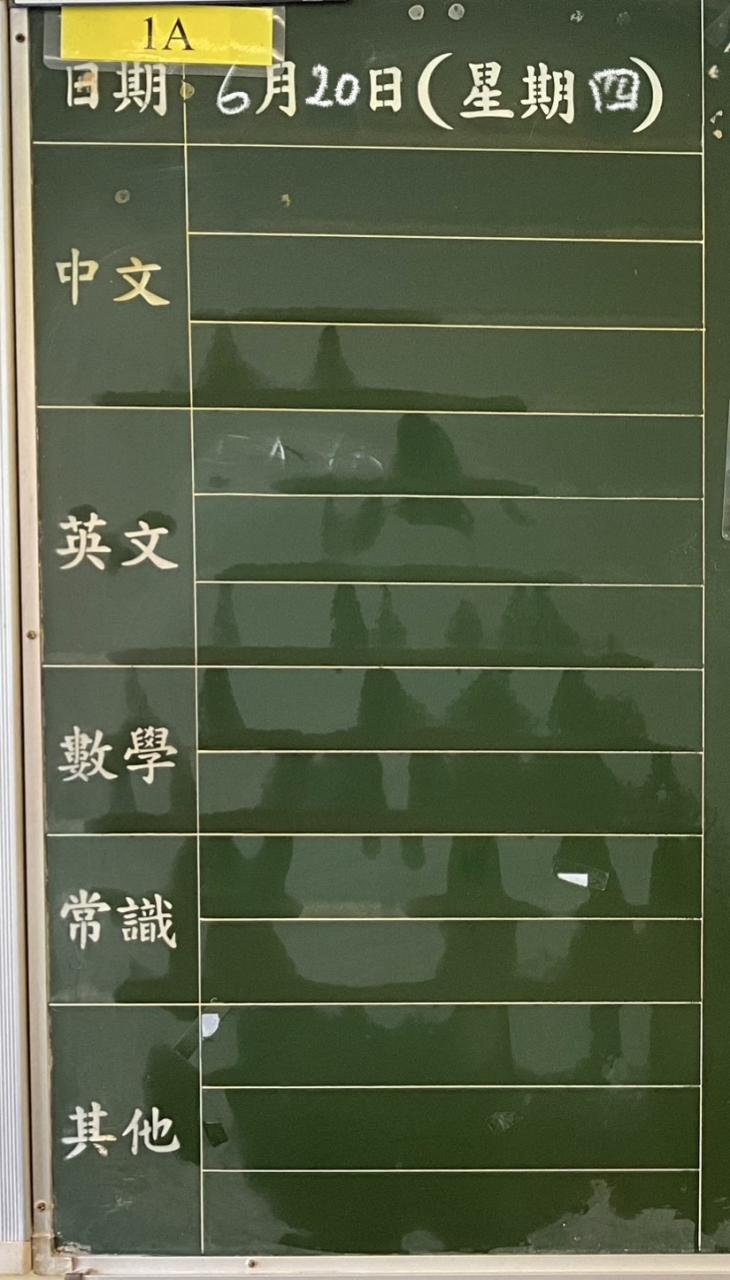 1A
日期 6月20日(星期四)
中文
英文
數學
常識
其他